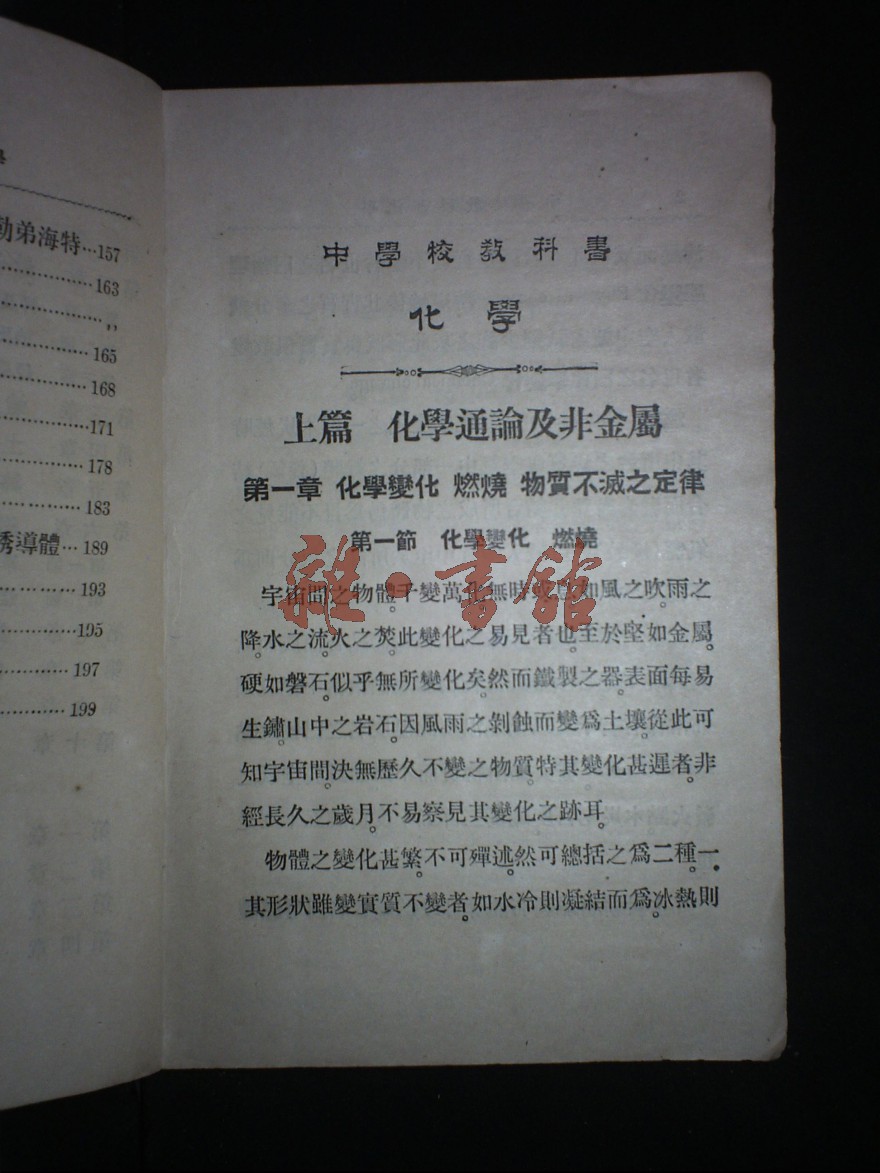 勒弟海特…157
163
,,
165
168
171
178
183
誘導體…189
193
195
197
199
中學校教科書
化學
上篇 化學通論及非金屬
第一章 化學變化 燃燒 物質不滅之定律
第一節 化學變化 燃燒
宇宙間之物體千變萬化無時或已如風之吹。雨之
降。水之流。火之焚。此變化之易見者也。至於堅如金屬。
硬如磐石。似乎無所變化矣。然而鐵製之器。表面每易
生鏽。山中之岩石。因風雨之剝蝕而變爲土壤。從此可
知宇宙間。決無歷久不變之物質。特其變化甚遲者。非
經長久之歲月。不易察見其變化之跡耳。
物體之變化甚繁。不可殫述。然可總括之爲二種。一.
其形狀雖變。實質不變者。如水冷則凝結而爲冰。熱則
雜·書館